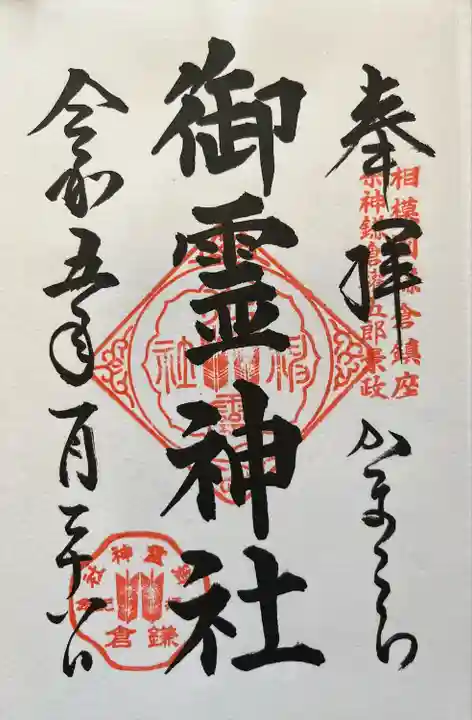 奉拝
かまくら
相模国鎌倉鎮座
祭神鎌倉権五郎景政
御霊神社
令和五年一月二十八日
御霊神社
鎌倉